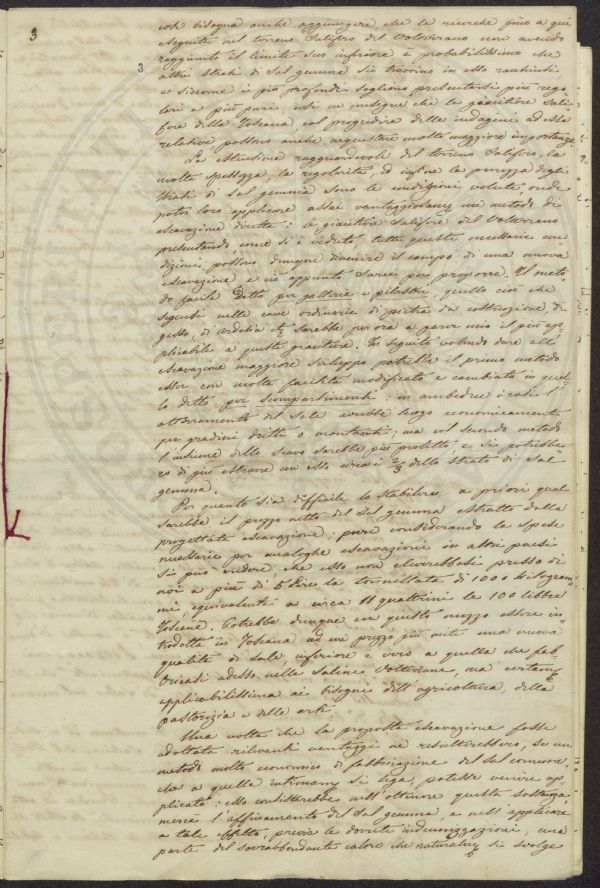 3
3
così bisogna anche aggiungere che le ricerche fino a qui
eseguite nel terreno Salifero del Volterrano non avendo
raggiunto il limite suo inferiore è probabilissimo che
altri strati di Sal gemma si trovino in esso racchiusi,
e siccome i più profondi sogliono presentarsi più rego-
lari e più puri così ne consegue che le giaciture Sali-
fere della Toscana col progredire delle indagini ad esse
relative, possono anche acquistare molta maggiore importanza.
La estensione ragguardevole del terreno Salifero, la
molta spessezza, la regolarità, ed infine la purezza degli
strati di Sal gemma sono le condizioni volute, onde
poter loro applicare assai vantaggiosamte un metodo di
escavazione diretta: le giaciture Salifere del Volterrano
presentando come si è veduto, tutte queste necessarie con-
dizioni, possono dunque divenire il campo di una nuova
escavazione, e ciò appunto sarei per proporre. Il meto-
do facile detto per gallerie e pilastri, quello cioè che
seguesi nelle cave ordinarie di pietra da costruzione, di
gesso, di Ardesia &c. sarebbe per ora a parer mio il più ap-
plicabile a queste giaciture. In seguito volendo dare all'
escavazione maggiore sviluppo potrebbe il primo metodo
esser con molta facilità modificato e cambiato in quel-
lo detto per scompartimenti: in ambedue i casi l'
atterramento del Sale avrebbe luogo economicamente
per gradini diritti o montanti; ma col secondo metodo
l'insieme dello scavo sarebbe più protetto e si potrebbe-
ro di più estrarre con esso circa i 2/3 dello strato di Sal
gemma.
Per quanto sia difficile lo stabilire a priori qual
sarebbe il prezzo netto del Sal gemma estratto dalla
progettata escavazione; pure considerando le spese
necessarie per analoghe escavazioni in altri paesi
si può credere, che esso non eleverebbesi presso di
noi a più di 5 lire la tonnellata di 1000 kilogram-
mi, equivalente a circa 11 quattrini le 100 libbre
Toscane. Potrebbe dunque con questo mezzo essere in-
trodotta in Toscana ad un prezzo più mite una nuova
qualità di Sale, inferiore è vero a quella che fab-
bricasi adesso nelle Saline Volterrane, ma certamte
applicabilissima ai bisogni dell'agricoltura, della
pastorizia e delle arti.
Una volta che la proposta escavazione fosse
adottata rilevanti vantaggi ne resulterebbero, se un
metodo molto economico di fabbricazione del Sal comune,
che a quella intimamte si lega, potesse venire ap-
plicato: esso consisterebbe nell'ottenere questa sostanza,
mercè l'affinamento del Sal gemma, e nell'applicare
a tale effetto, previe le dovute indennizzazioni, una
parte del sovrabbondante calore che naturalmte si svolge